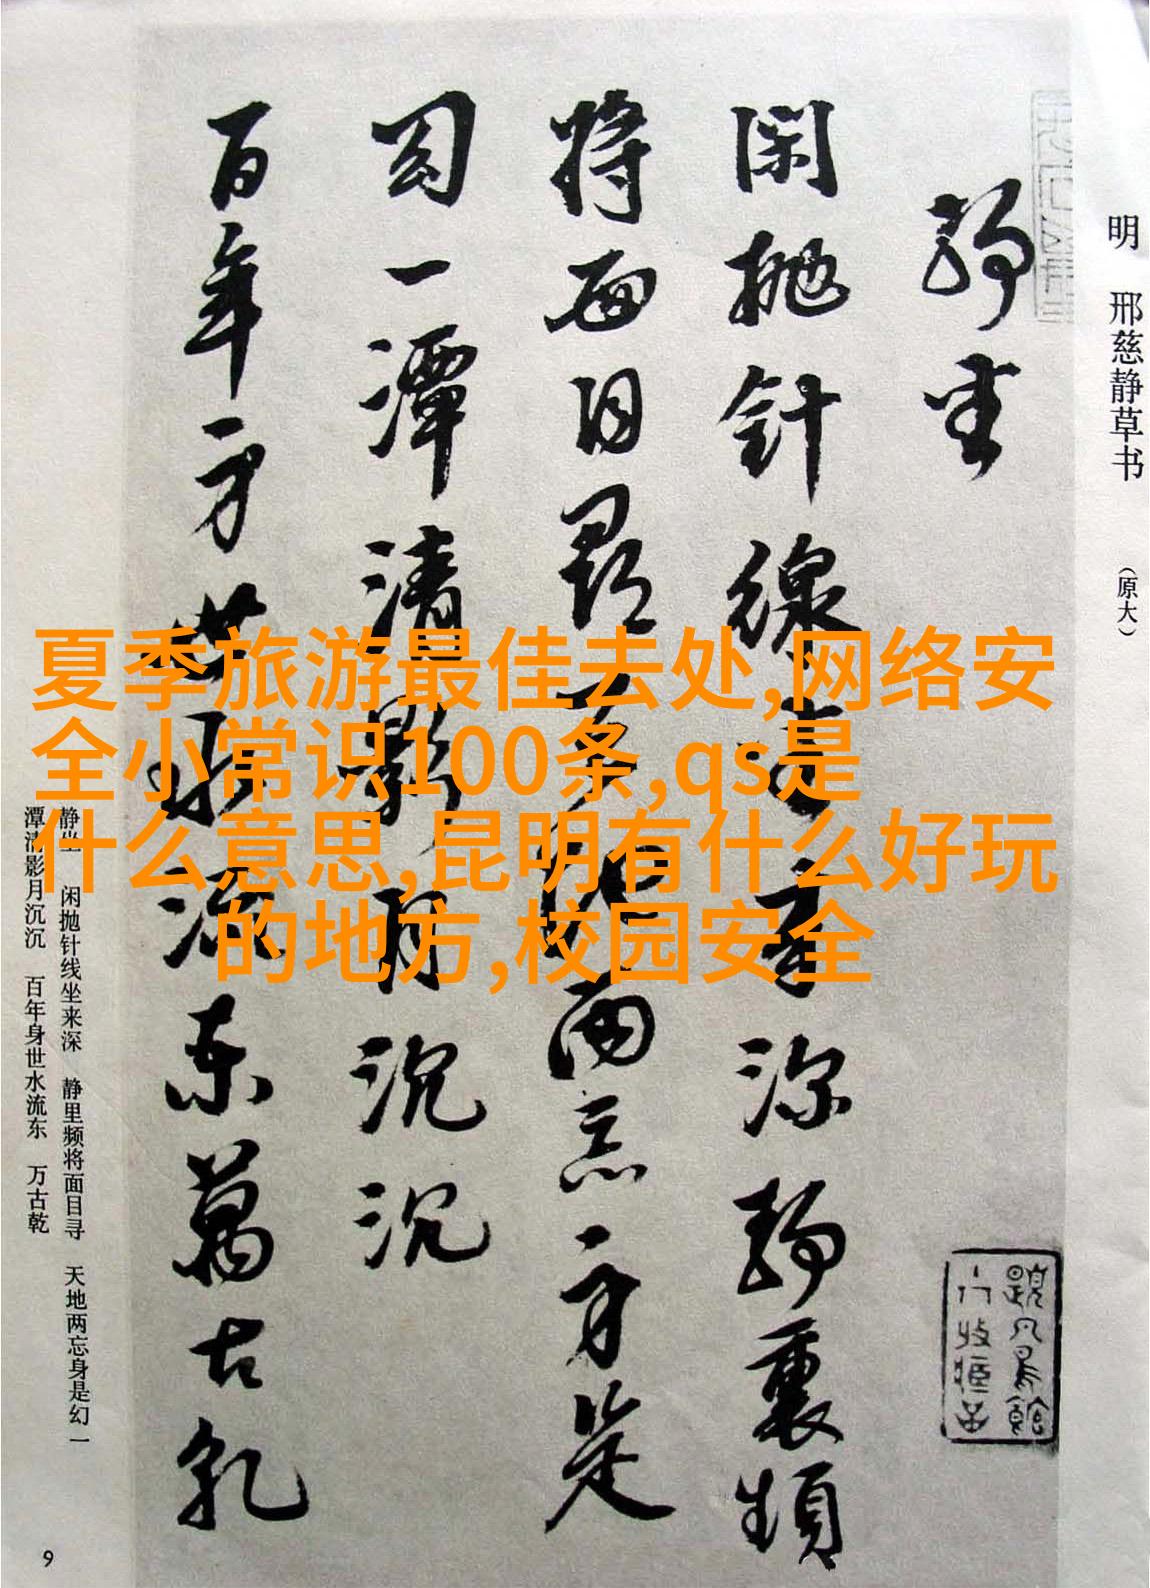 明 邢慈静草书 （原大）
靜坐
閑拋針線坐來深靜裏頻
將面目尋天地兩忘身是
幻一潭清影月沉沉
百年身世水流東萬古乾
夏季旅游最佳去处,网络安
全小常识100条,qs是
什么意思,昆明有什么好玩
的地方,校园安全
静坐 闲抛针线坐来深 静里频将面目寻 天地两忘身是幻 一
潭清影月沉沉 百年身世水流东 万古乾
9